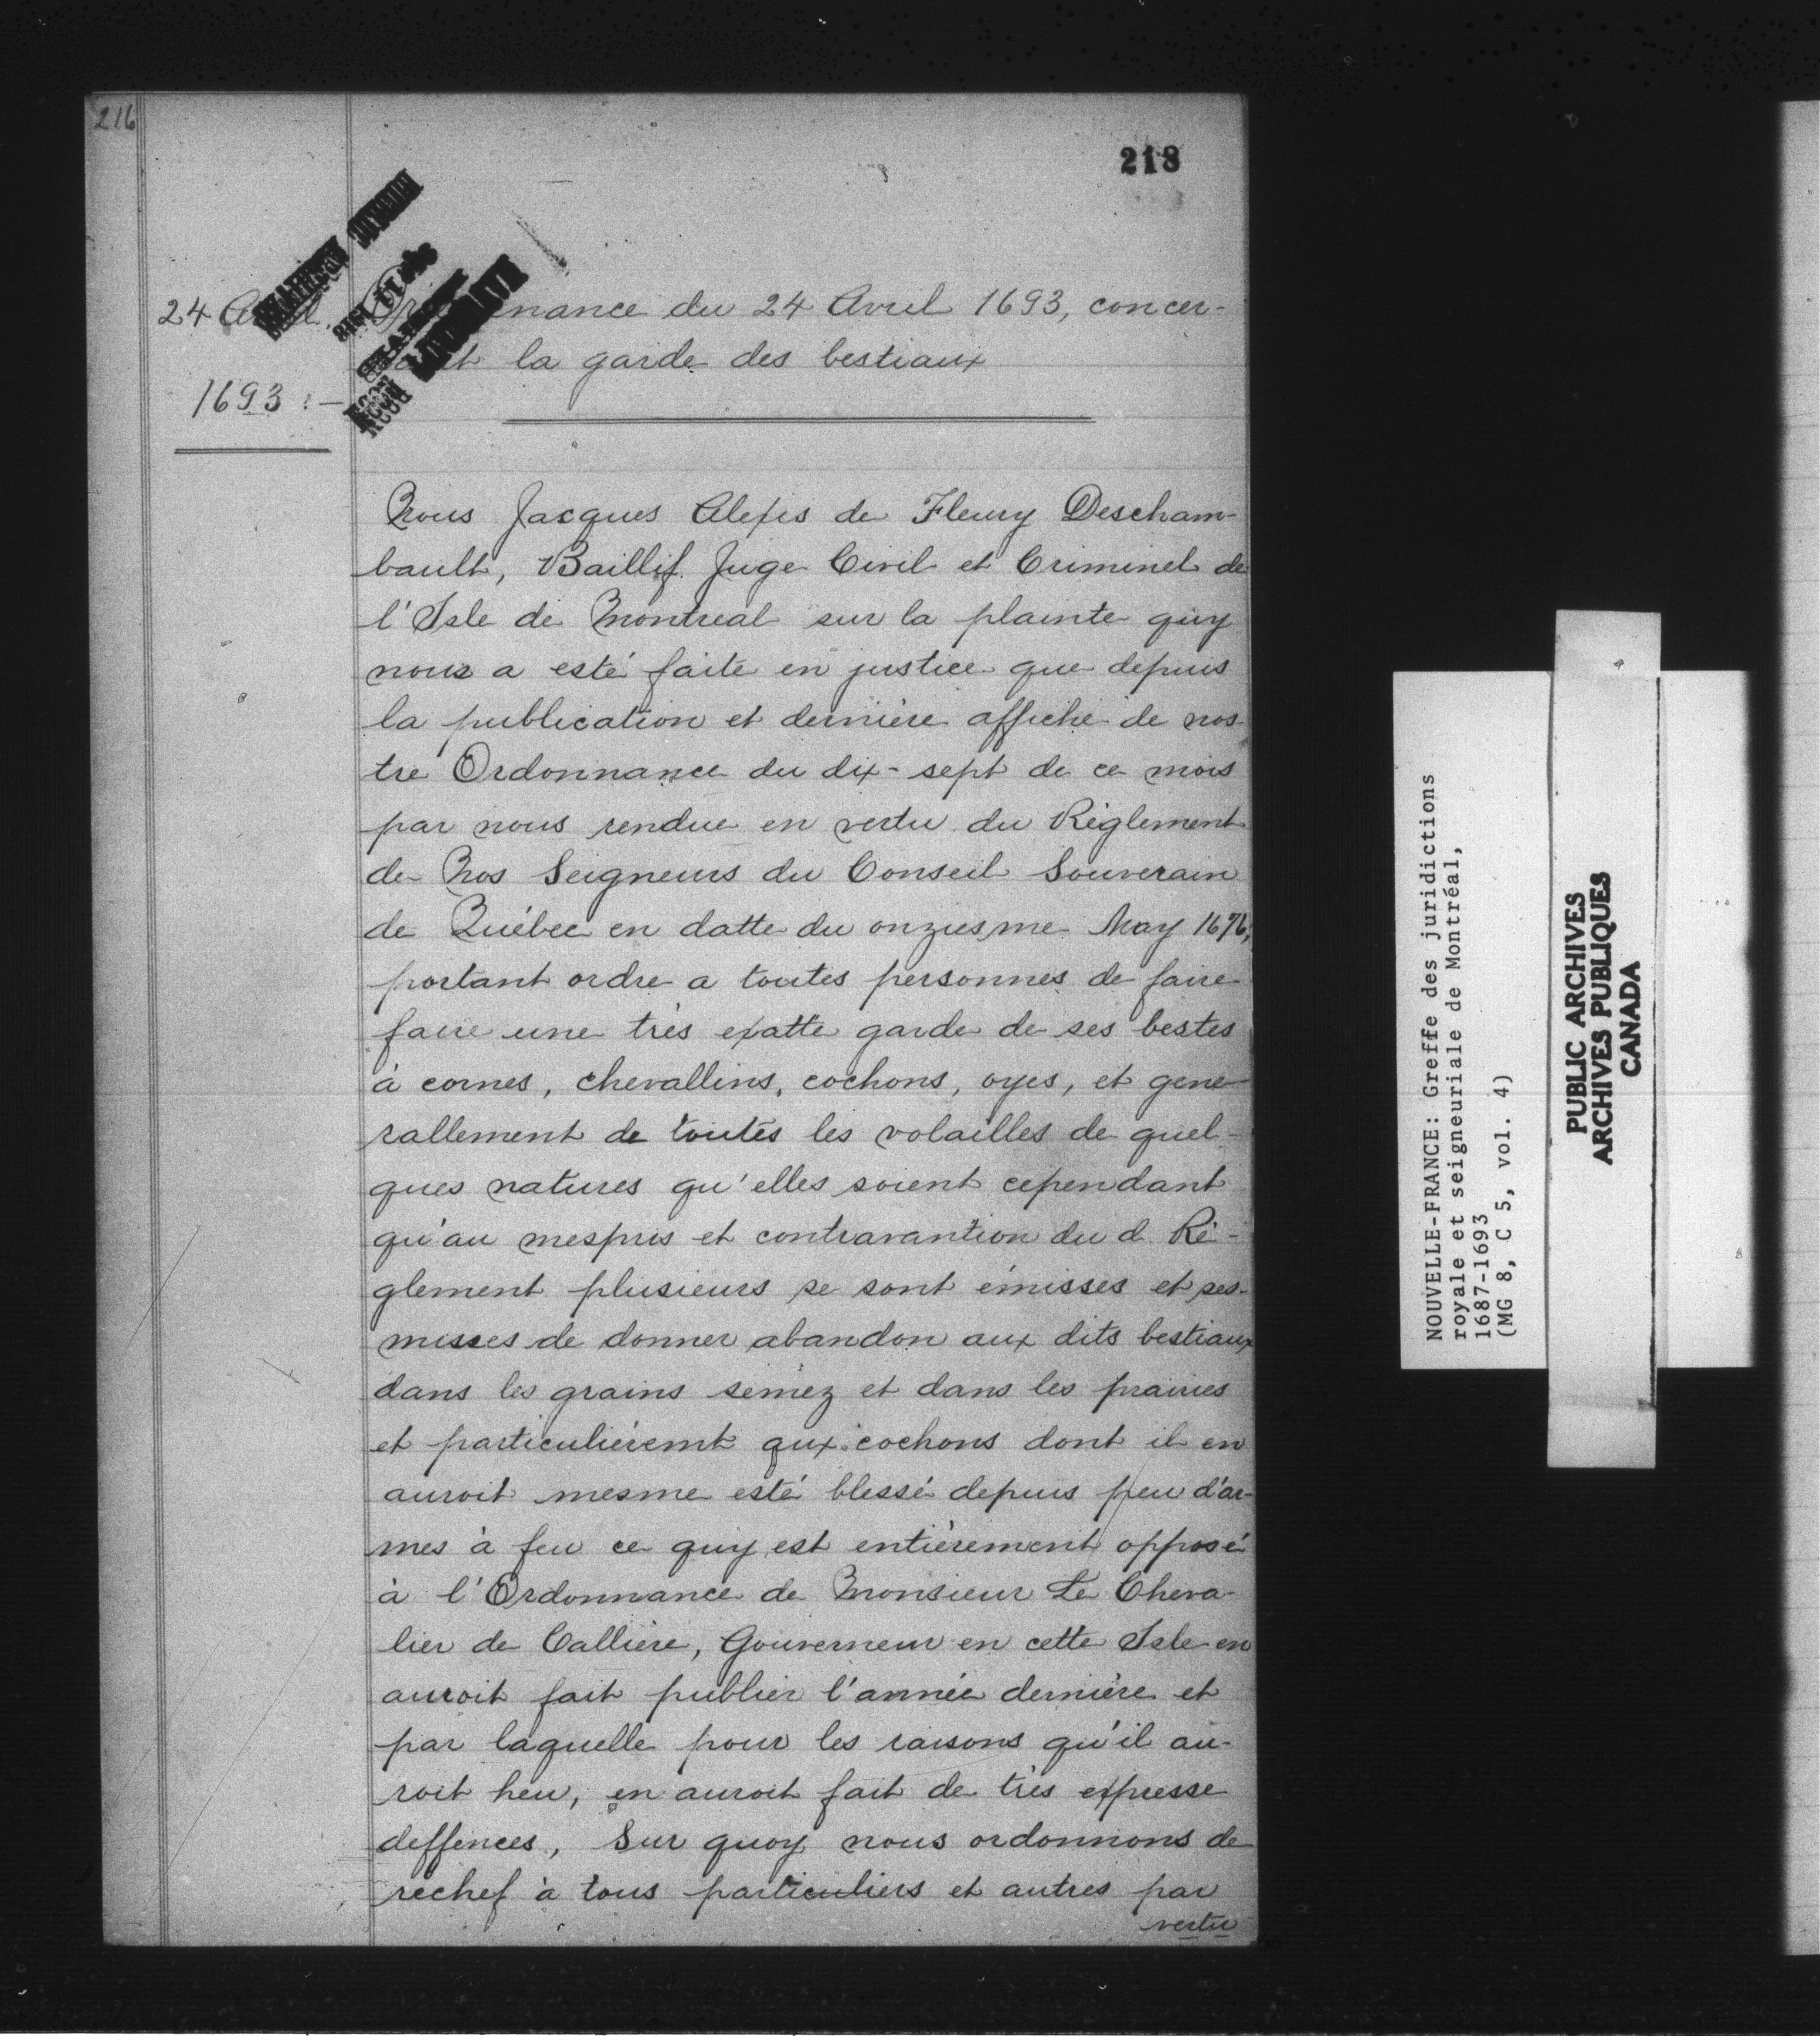 216
218
24 Avril
1693 :-
Ordonnance du 24 Avril 1693, concer-
nant la garde des bestiaux
Nous Jacques Alexis de Fleury Descham-
bault, Baillif Juge Civil et Criminel de
l'Isle de Montreal sur la plainte quy
nous a esté faite en justice que depuis
la publication et dernière affiche de nos-
tre Ordonnance du dix-sept de ce mois
par nous rendue en vertu du Règlement
de Nos Seigneurs du Conseil Souverain
de Québec en datte du onziesme May 1676,
portant ordre a toutes personnes de faire
faire une très exatte garde de ses bestes
à cornes, chevallins, cochons, oyes, et gene-
rallement de toutes les volailles de quel-
ques natures qu'elles soient cependant
qu'au mespris et contravantion du d. Rè-
glement plusieurs se sont émisses et ses-
misses de donner abandon aux dits bestiaux
dans les grains semez et dans les prairies
et particulièremt aux cochons dont il en
auroit mesme esté blessé depuis peu d'ar-
mes à feu ce quy est entièrement opposé
à l'Ordonnance de Monsieur Le Cheva-
lier de Callière, Gouverneur en cette Isle en
auroit fait publier l'année dernière et
par laquelle pour les raisons qu'il au-
roit heu, en auroit fait de très expresse
deffences, Sur quoy nous ordonnons de
rechef à tous particuliers et autres par
vertu
NOUVELLE-FRANCE: Greffe des juridictions
royale et seigneuriale de Montréal,
1687-1693
(MG 8, C 5, vol. 4)
PUBLIC ARCHIVES
ARCHIVES PUBLIQUES
CANADA